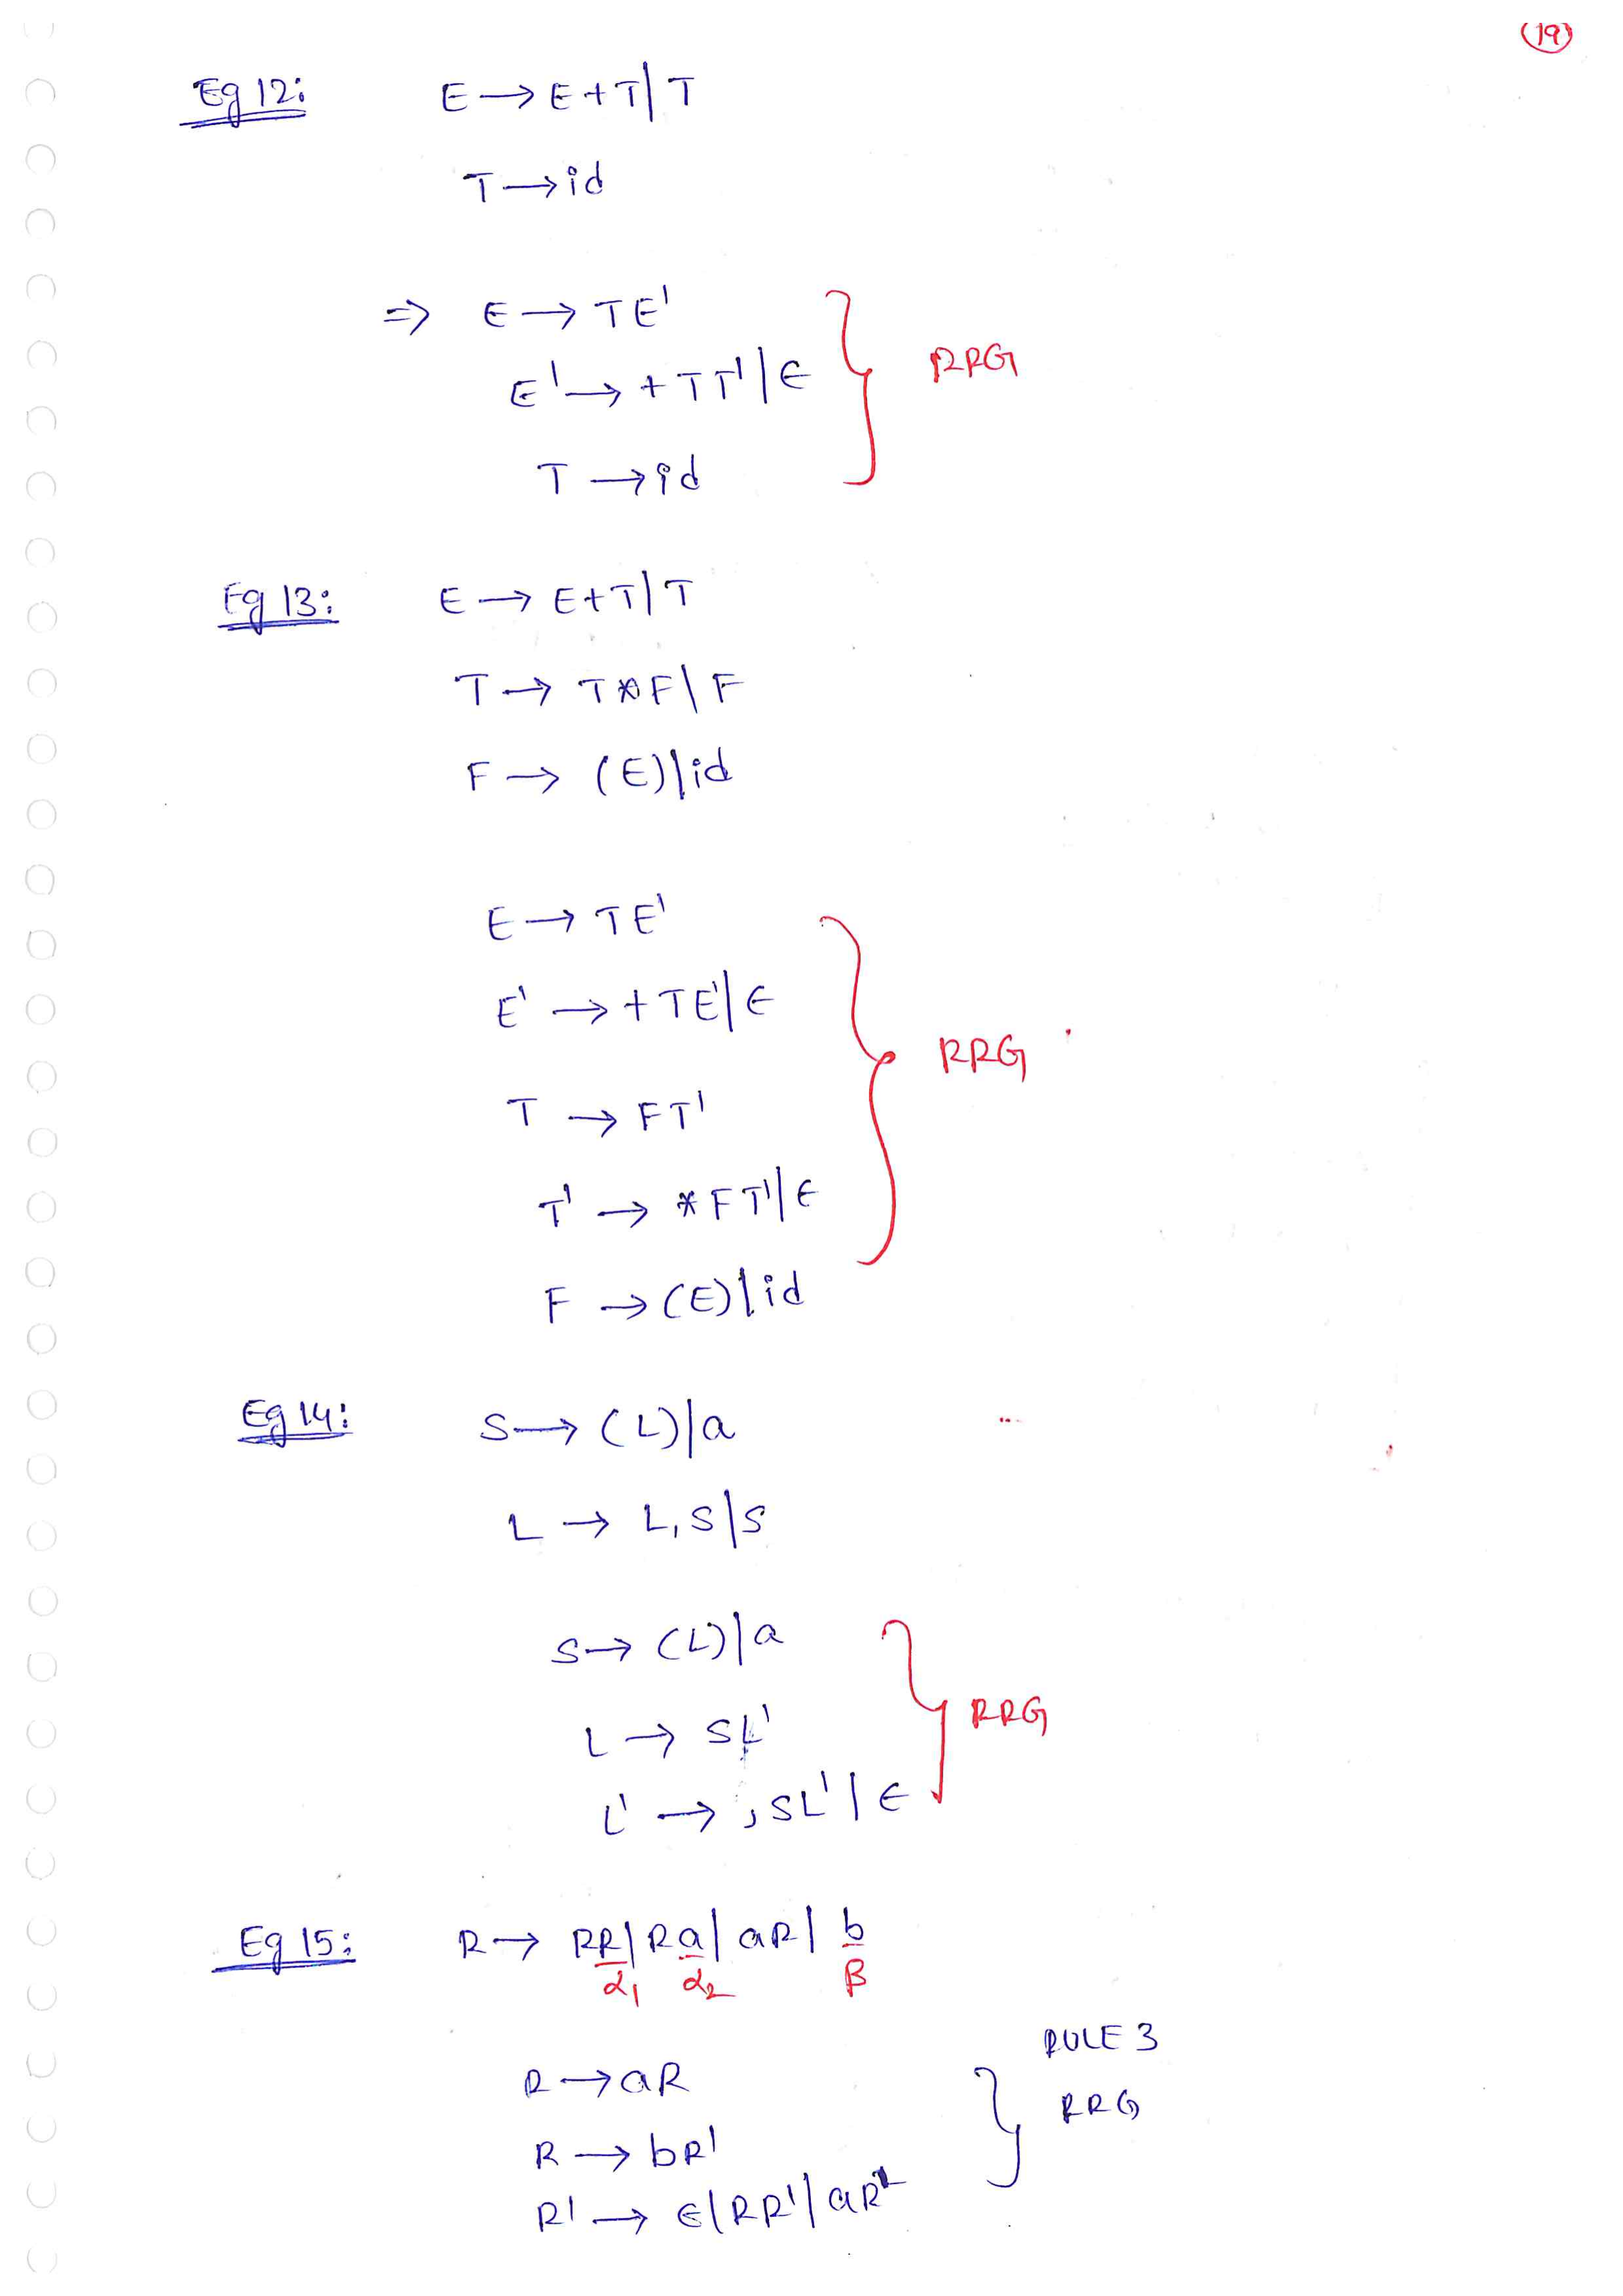 (19)
Eg 12: E → E + T | T
T → id
⇒ E → TE'
E' → + TT' | ∈
T → id
RRG
Eg 13: E → E + T | T
T → T * F | F
F → (E) | id
E → TE'
E' → + TE' | ∈
T → FT'
T' → * FT' | ∈
F → (E) | id
RRG
Eg 14: S → (L) | a
L → L, S | S
S → (L) | a
L → SL'
L' → , SL' | ∈
RRG
Eg 15: R → RR | Ra | aR | b
α₁ α₂ β
R → aR
R → bR'
R' → ∈ | RR' | aR'
RULE 3
RRG